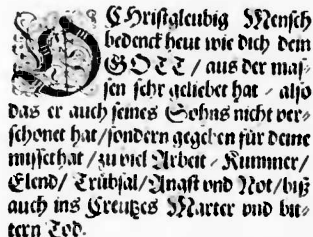 O Christgleubig Mensch
bedenck heut wie dich dein
GOTT / aus der mas-
sen sehr geliebet hat / also
das er auch seines Sohns nicht ver-
schonet hat / sondern gegeben für deine
missethat / zu viel Arbeit / Kummer /
Elend / Trübsal / Angst vnd Not / biß
auch ins Creutzes Marter vnd bit-
tern Tod.